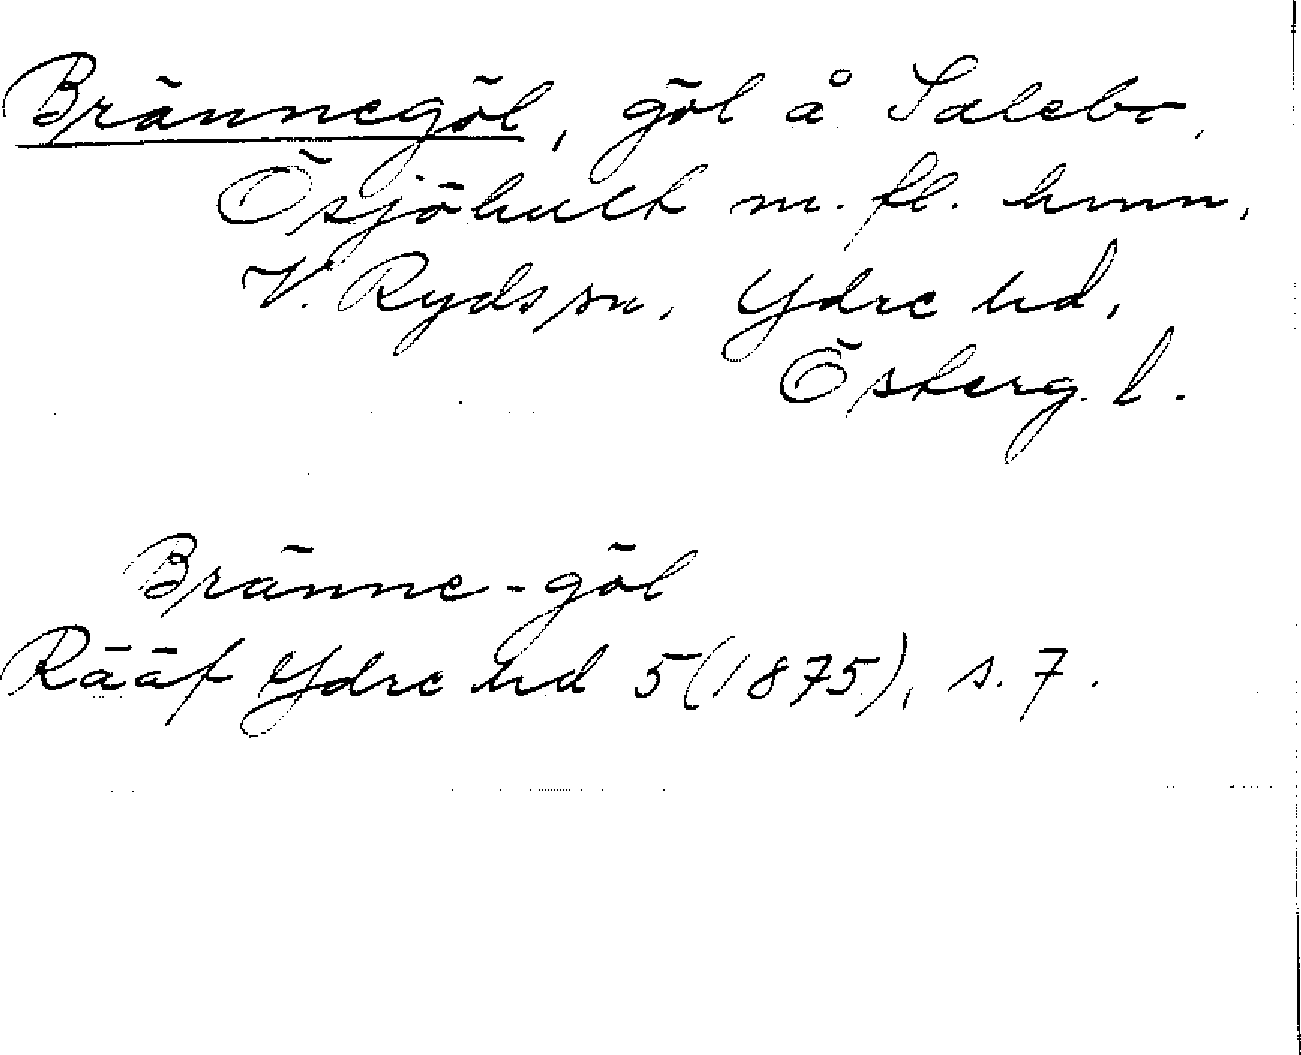 Brännegöl, göl å Salebo,
Ösjöhult m. fl. hmn,
V. Ryds sn, Ydre hd,
Österg. l.
Bränne-göl
Rääf Ydre hd 5 (1875), s. 7.